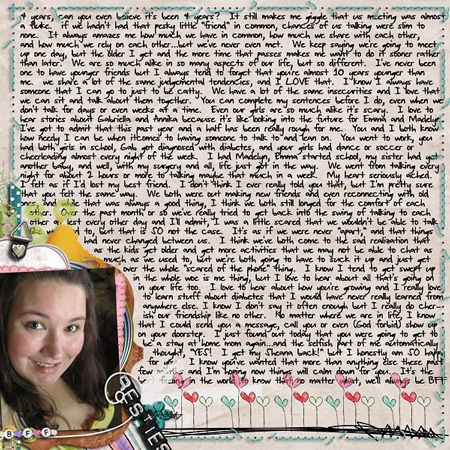 4 years, can you even believe it's been 4 years? It still makes me giggle that us meeting was almost
a fluke. If we hadn't had that pesky little "friend" in common, chances of us talking were slim to
none. It always amazes me how much we have in common, how much we share with each other,
and how much we rely on each other...but we've never even met. We keep saying we're going to meet
up one day, but the older I get and the more time that passes makes me want to do it sooner rather
than later. We are so much alike in so many aspects of our life, but so different. I've never been
one to have younger friends but I always told to forget that you're almost 10 years younger than
me. we share a lot of the same judgemental tendencies, and I LOVE that. I know I always have
someone that I can go to just to be catty. We have a lot of the same insecurities and I love that
we can sit and talk about them together. You can complete my sentences before I do, even when we
don't talk for days or even weeks at a time. Even our girls are so much alike it's scary. I love to
hear stories about Gabriella and Annika because it's like looking into the future for Emma and Madelyn
I've got to admit that this past year and a half has been really rough for me. You and I both know
how needy I can be when it comes to having someone to talk to and lean on. You went to work, you
and both girls in school, Gab got diagnosed with diabetes, and your girls had dance or soccer or
cheerleading almost every night of the week. I had Madelyn, Emma started school, my sister had
another baby, and well, with my surgery and all, life just got in the way. We went from talking every
night for about 2 hours or more to talking maybe that much in a week. My heart seriously ached.
I felt as if I'd lost my best friend. I don't think I ever really told you that, but I'm pretty sure
that you felt the same way. We both were out making new friends and even reconnecting with old
and as that was always a good thing, I think we both still longed for the comfort of each
other. Over the past month or so we've really tried to get back into the swing of talking to each
other every other day and I'll admit, I was a little scared that we wouldn't be able to talk
like to, but that is SO not the case. It's as if we were never "apart," and that things
had never changed between us. I think we've both come to the sad realization that
as the kids get older and get more activities that we may not be able to chat as
much as we used to, but we're both going to have to suck it up and just get
over the whole "scared of the phone" thing. I know I tend to get swept up
in the whole woe is me thing, but I love to hear about all that's going on
in your life too. I love to hear about how you're growing and I really love
to learn stuff about diabetes that I would have never really learned from
anywhere else. I know I don't say it often enough but I really do cher-
ish our friendship like no other. No matter where we are in life, I know
that I could send you a message, call you or even (God forbid) show up
on your doorstep. I just found out today that you were going to get to
be a stay at home mom again...and the selfish part of me automatically
thought, "YES! I get my Sheana back!" but I honestly am SO happy
for you. I know you've wanted that more than anything else these past
few and I'm hoping now things will calm down for you. It's the
best feeling in the world to know that no matter what, we'll always be BFF
BESTIES
BFF